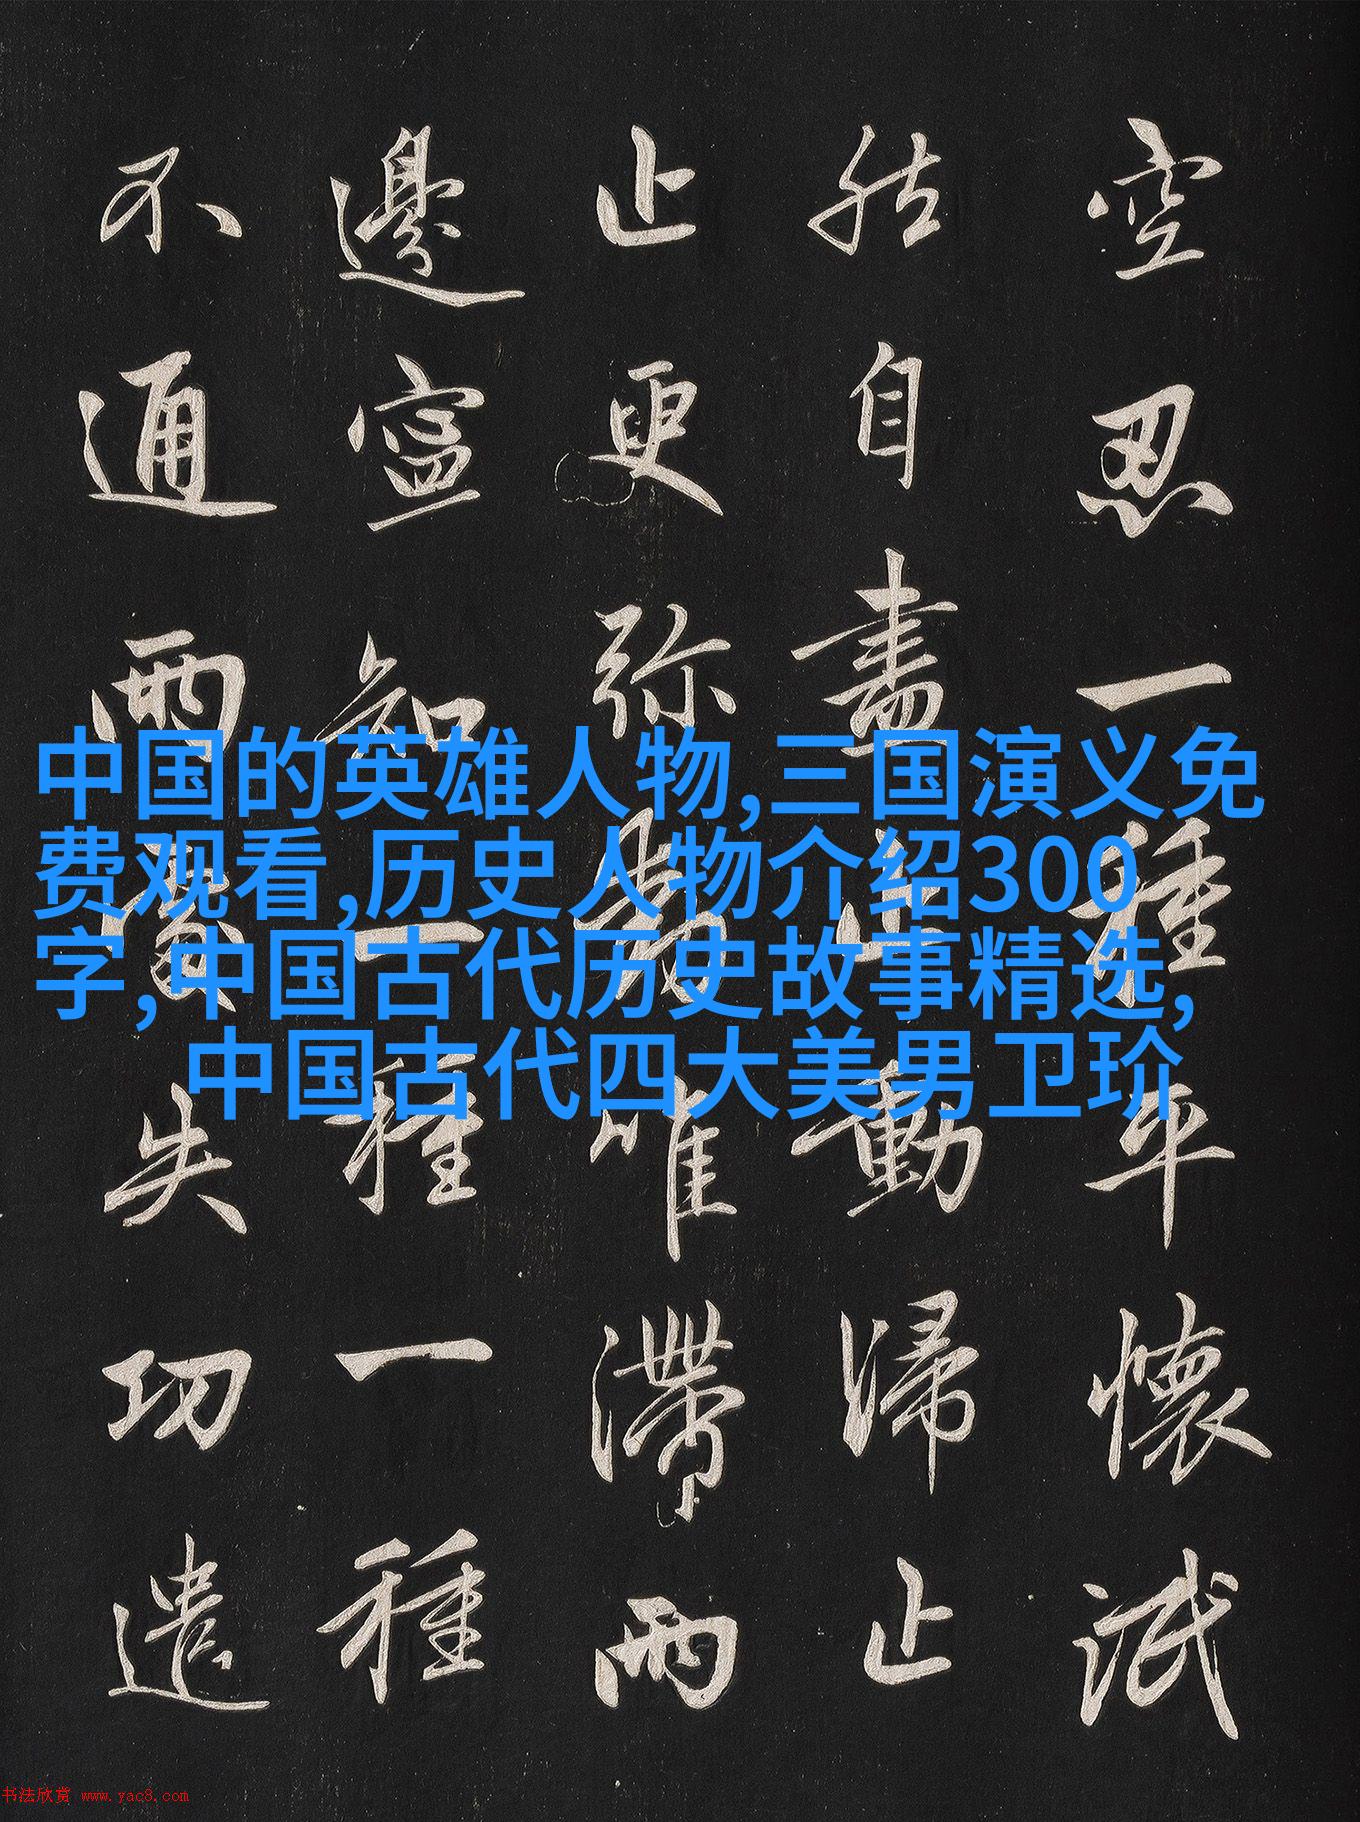 空忍一種平懷泯
然自盡止動歸止
止更弥動唯滯兩
邊寍知一種一種
不通兩處失功遣
中国的英雄人物,三国演义免
费观看,历史人物介绍300
字,中国古代历史故事精选,
中国古代四大美男卫玠
书法欣赏 www.yac8.com